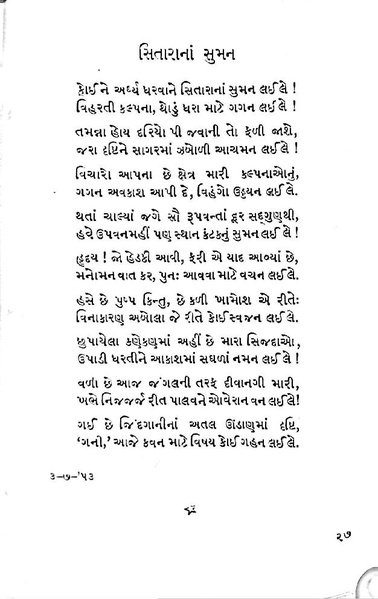 સિતારાનાં સુમન
કોઈને અર્ઘ્ય ધરવાને સિતારાનાં સુમન લઈ લે !
વિહરતી કલ્પના, થોડું ધરા માટે ગગન લઈ લે !
તમન્ના હોય દરિયો પી જવાની તો ફળી જાશે,
જરા દૃષ્ટિને સાગરમાં ઝબોળી આચમન લઈ લે !
વિચારો આપના છે ક્ષેત્ર મારી કલ્પનાઓનું,
ગગન અવકાશ આપી દે, વિહંગો ઉડ્ડયન લઈ લે.
થતાં ચાલ્યાં જગે સૌ રૂપવન્તાં દૂર સદ્ગુણથી,
હવે ઉપવનમહીં પણ સ્થાન કંટકનું સુમન લઈ લે !
હૃદય ! જો હેડકી આવી, ફરી એ યાદ આવ્યાં છે,
મનોમન વાત કર, પુનઃ આવવા માટે વચન લઈ લે.
હસે છે પુષ્પ કિન્તુ, છે કળી ખામોશ એ રીતે:
વિનાકારણ અબોલા જે રીતે કોઈ સ્વજન લઈ લે.
છુપાયેલા કણેકણમાં અહીં છે મારા સિજદાઓ,
ઉપાડી ધરતીને આકાશમાં સઘળાં નમન લઈ લે !
વળી છે આજ જંગલની તરફ દીવાનગી મારી,
ખભે નિજ જર્જરીત પાલવને ઓ વેરાન વન લઈ લે!
ગઈ છે જિંદગાનીનાં અતલ ઊંડાણમાં દૃષ્ટિ,
'ગની', આજે કવન માટે વિષય કોઈ ગહન લઈ લે.
૩-૭-'૫૩
૨૭